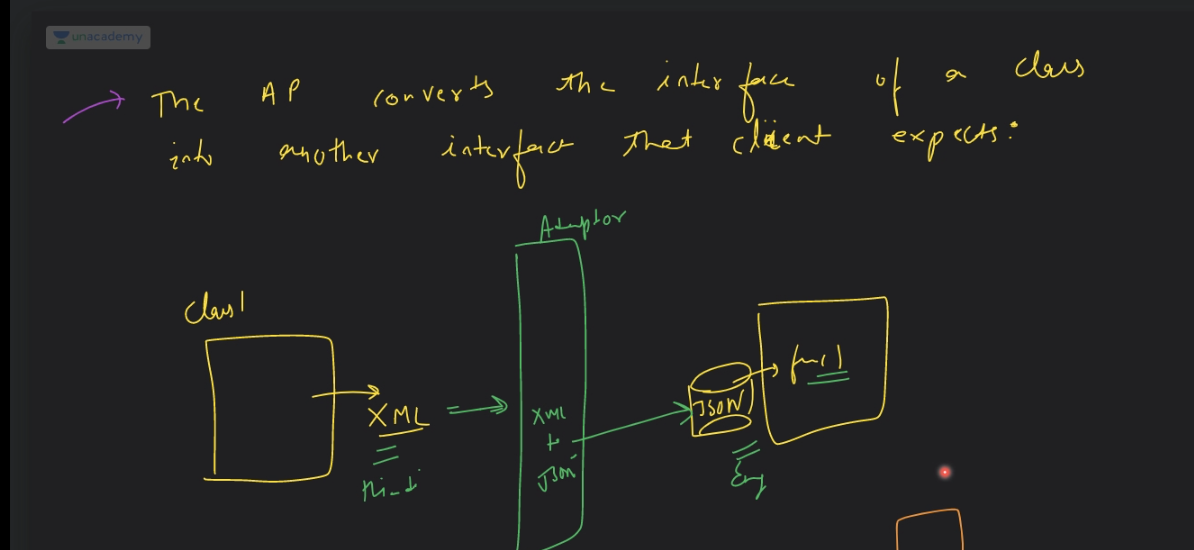 unacademy
The AP converts the interface of a class
into another interface that client expects.
Adaptor
Class1
XML
Hindi
XML
to
JSON
JSON
func()
Eng